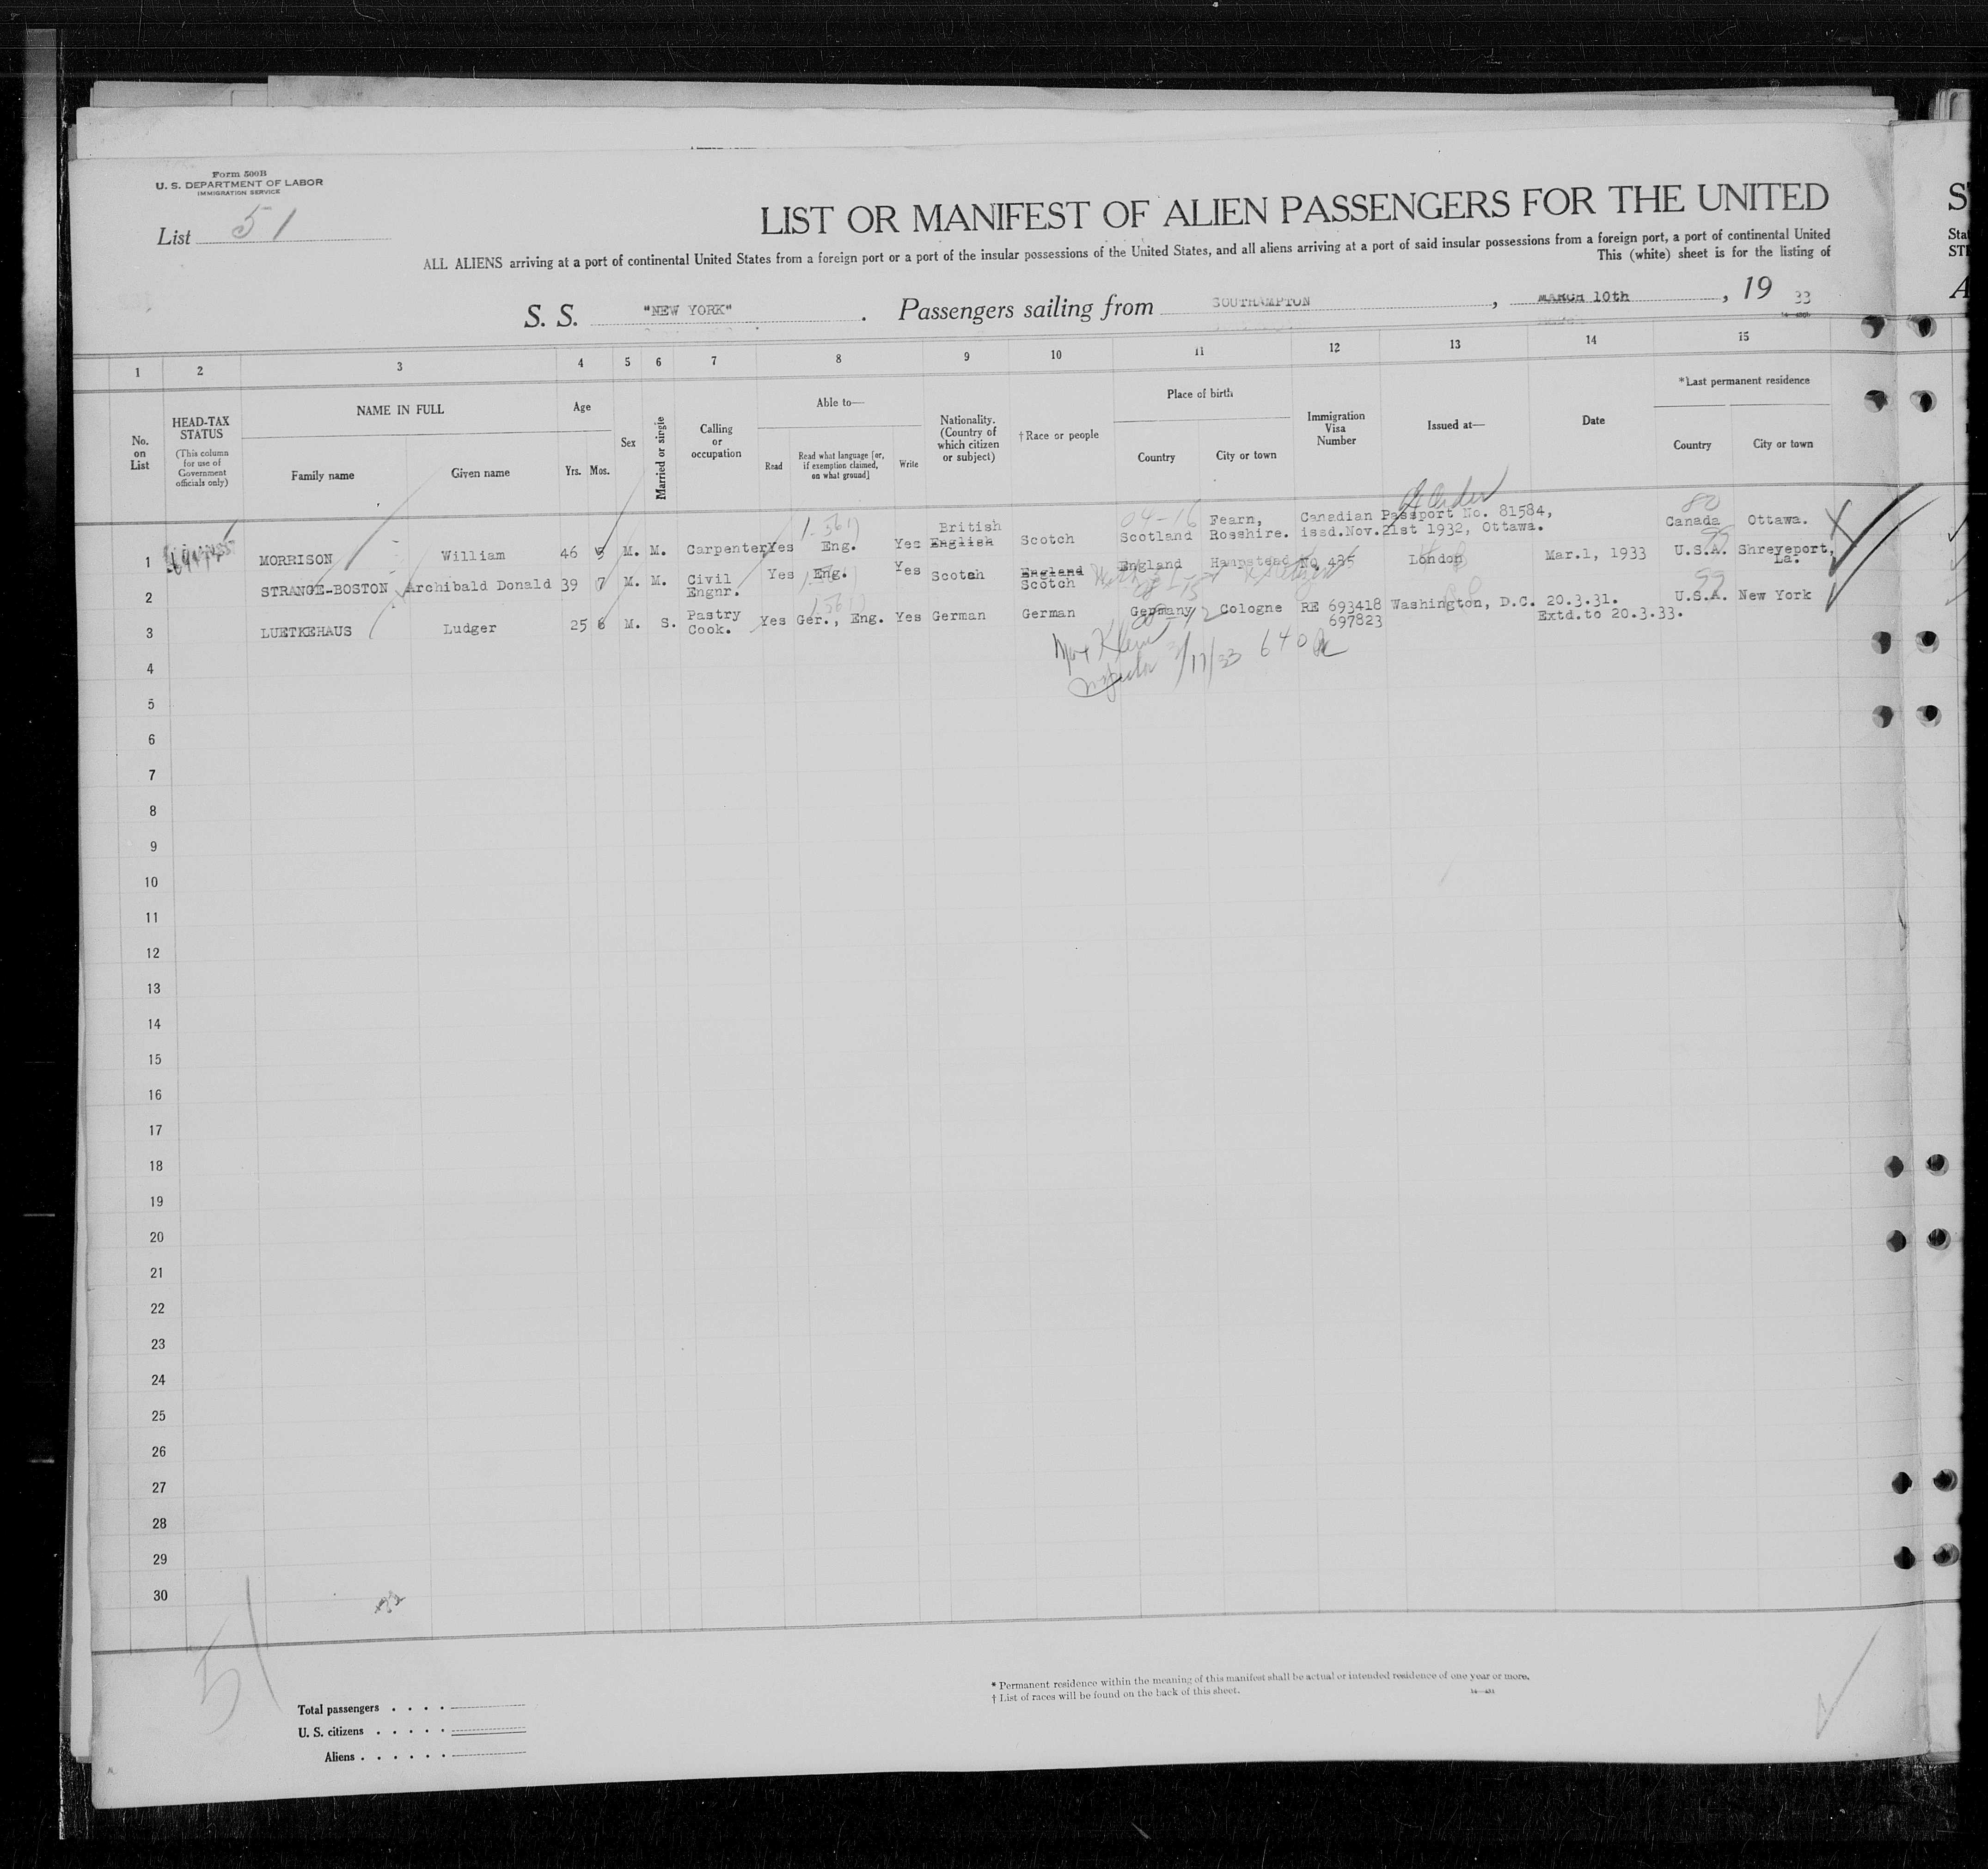 Form 500B
U. S. DEPARTMENT OF LABOR
IMMIGRATION SERVICE
List 51
LIST OR MANIFEST OF ALIEN PASSENGERS FOR THE UNITED
ALL ALIENS arriving at a port of continental United States from a foreign port or a port of the insular possessions of the United States, and all aliens arriving at a port of said insular possessions from a foreign port, a port of continental United
This (white) sheet is for the listing of
S. S. "NEW YORK". Passengers sailing from SOUTHAMPTON, MARCH 10th, 19 33
1 2 3 4 5 6 7 8 9 10 11 12 13 14 15
No. on List
HEAD-TAX STATUS (This column for use of Government officials only)
NAME IN FULL
Family name Given name
Age
Yrs. Mos.
Sex
Married or single
Calling or occupation
Able to—
Read Read what language [or, if exemption claimed, on what ground] Write
Nationality. (Country of which citizen or subject)
†Race or people
Place of birth
Country City or town
Immigration Visa Number
Issued at—
Date
*Last permanent residence
Country City or town
1 MORRISON William 46 5 M. M. Carpenter Yes Eng. Yes British English Scotch 04-16 Scotland Fearn, Rosshire. Canadian Passport No. 81584, issd.Nov.21st 1932, Ottawa. 80 Canada Ottawa.
2 STRANGE-BOSTON Archibald Donald 39 7 M. M. Civil Engnr. Yes Eng. Yes Scotch England Scotch England Hampstead No. 485 London Mar.1, 1933 99 U.S.A. Shreveport, La.
3 LUETKEHAUS Ludger 25 6 M. S. Pastry Cook. Yes Ger., Eng. Yes German German Germany Cologne RE 693418 697823 Washington, D.C. 20.3.31. Extd.to 20.3.33. 99 U.S.A. New York
Max Klein
Inspector 3/17/33 640
4
5
6
7
8
9
10
11
12
13
14
15
16
17
18
19
20
21
22
23
24
25
26
27
28
29
30
51
* Permanent residence within the meaning of this manifest shall be actual or intended residence of one year or more.
† List of races will be found on the back of this sheet.
Total passengers
U. S. citizens
Aliens